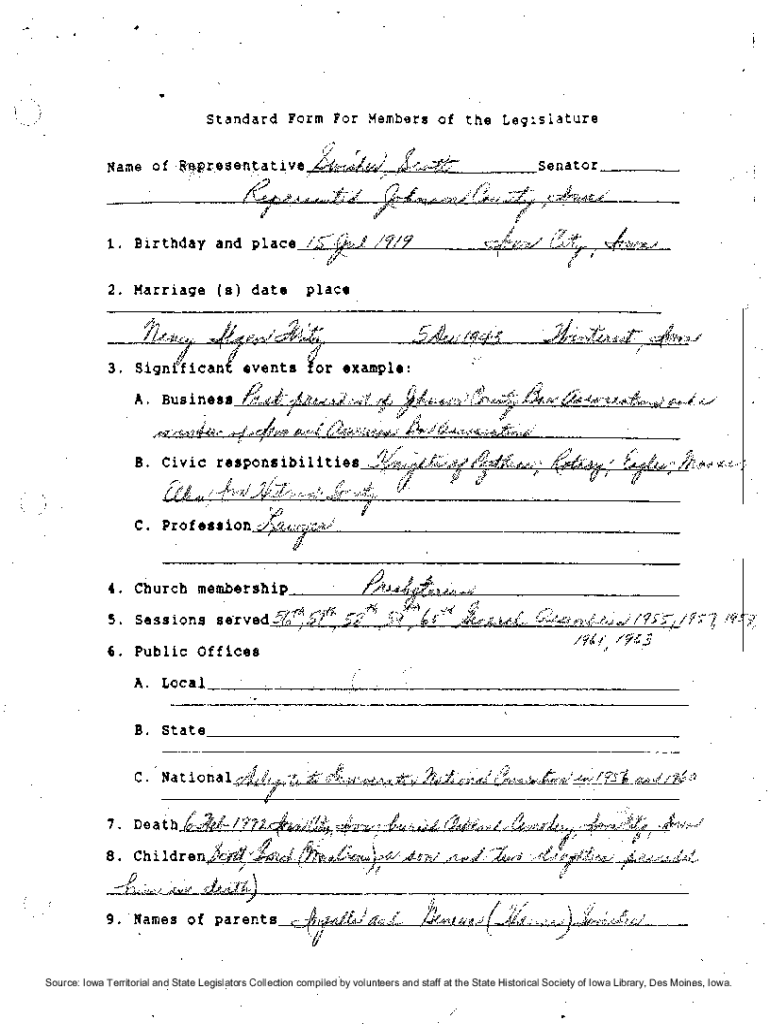 Standard Form For Members of the Legislature
Name of Representative Swisher, Scott Senator
Represented Johnson County, Iowa
1. Birthday and place 15 Jul 1919 Iowa City, Iowa
2. Marriage (s) date place
Nancy 5 Dec 1943 Winterset, Iowa
3. Significant events for example:
A. Business Past president of Johnson County Bar Association and a
member of Iowa and American Bar Association
B. Civic responsibilities Knights of Pythias; Rotary; Eagles; Moose;
Elks; Society
C. Profession Lawyer
4. Church membership Presbyterian
5. Sessions served 56th, 57th, 58th, 59th, 60th General Assemblies 1955, 1957, 1959,
1961, 1963
6. Public Offices
A. Local
B. State
C. National Delegate to Democratic National Convention in 1956 and 1960
7. Death 6 Feb 1992 Iowa City, Iowa buried Oakland Cemetery, Iowa City, Iowa
8. Children a son and two daughters preceded
him in death)
9. Names of parents Ingalls and Swisher
Source: Iowa Territorial and State Legislators Collection compiled by volunteers and staff at the State Historical Society of Iowa Library, Des Moines, Iowa.